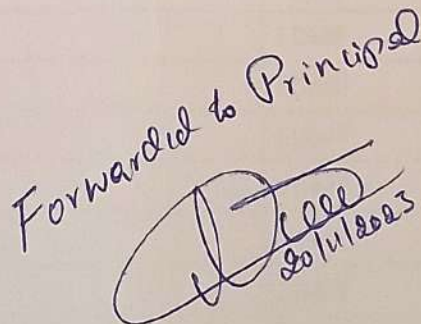 Forwarded to Principal
20/11/2023